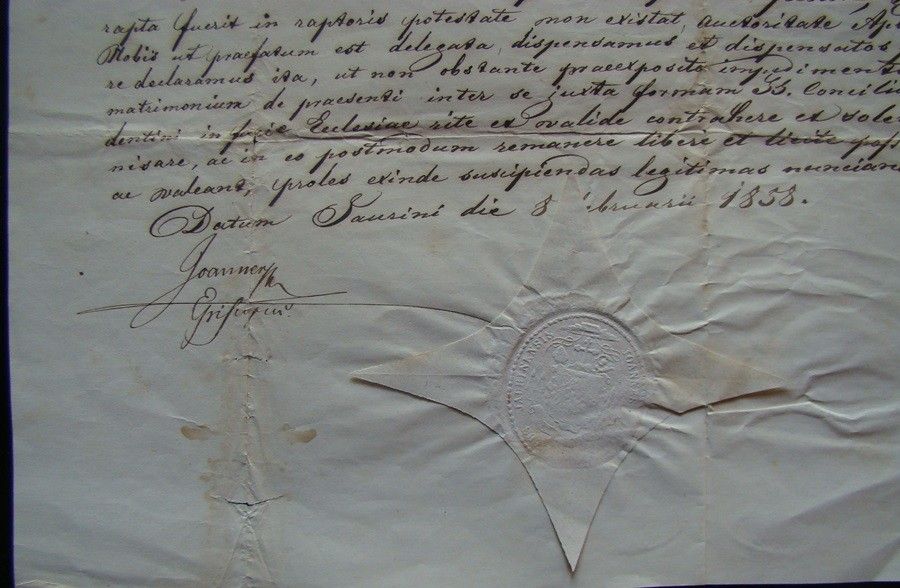 rapta fuerit in raptoris potestate non existat, auctoritate Apo
Nobis ut praefatum est delegata, dispensamus, et dispensatos fo
re declaramus ita, ut non obstante praeexposito impedimento
matrimonium de praesenti inter se juxta formam SS. Concilii
dentini in facie Ecclesiae rite et valide contrahere et solem
nisare, ac in eo postmodum remanere libere et licite pos
ac valeant, proles exinde suscipiendas legitimas nuncian
Datum Jaurini die 8 ebruarii 1858.
Joannes
Episcopus